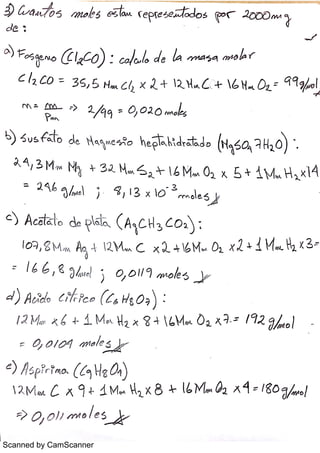 3) Cuantos moles estan representados por 2000 mg
de:
a) Fosgeno (Cl2CO) : calculo de la masa molar
Cl2CO = 35,5 Mm Cl2 x 2 + 12 Mm C + 16 Mm O2 = 99 g/mol
m = => 2/99 = 0,020 moles
b) Susfato de Magnesio heptahidratado (MgSO4 7H2O) :
24,3 Mm Mg + 32 Mm S2 + 16 Mm O2 x 5 + 1 Mm H2 x 14
= 246 g/mol ; 8,13 x 10-3 moles
c) Acetato de plata (AgCH3CO2) :
107,8 Mm Ag + 12 Mm C x2 + 16 Mm O2 x2 + 1 Mm H2 x 3 =
= 166,8 g/mol ; 0,0119 moles
d) Acido Citrico (C6H8O7) :
12 Mm x 6 + 1 Mm H2 x 8 + 16 Mm O2 x 7 = 192 g/mol
= 0,0104 moles
e) Aspirina (C9H8O4)
12 Mm C x 9 + 1 Mm H2 x 8 + 16 Mm O2 x 4 = 180 g/mol
=> 0,011 moles
Scanned by CamScanner